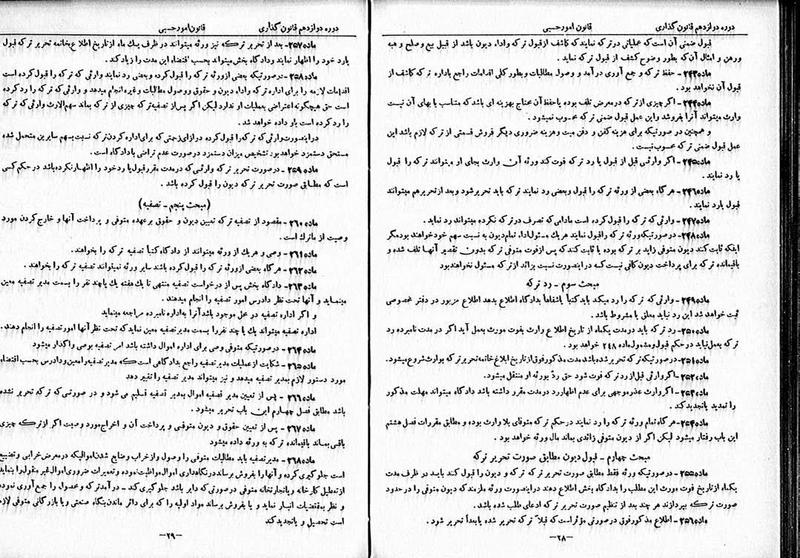 دوره دوازدهم قانون گذاری قانون امور حسبی
قبول ضمنی آن است که عملیاتی در ترکه نمایند که کاشف از قبول ترکه و اداء دیون باشد از قبیل بیع و صلح و هبه
ورهن و امثال آن که بطور وضوح کاشف از قبول ترکه نماید.
ماده۲۴۳ - حفظ ترکه و جمع آوری درآمد و وصول مطالبات و بطور کلی اقدامات راجع باداره ترکه کاشف از
قبول آن نخواهد بود.
ماده۲۴۴ - اگر چیزی از ترکه در معرض تلف بوده یا حفظ آن محتاج بهزینه ای باشد که متناسب با بهای آن نیست
وارث میتواند آنرا بفروشد و این عمل قبول ضمنی ترکه محسوب نمیشود.
و همچنین در صورتیکه برای هزینه کفن و دفن میت و هزینه ضروری دیگر فروش قسمتی از ترکه لازم باشد این
عمل قبول ضمنی ترکه محسوب نیست.
ماده۲۴۵ - اگر وارثی قبل از قبول یا رد ترکه فوت کند ورثه آن وارث بجای او میتوانند ترکه را قبول
یا رد نمایند.
ماده۲۴۶ - هرگاه بعضی از ورثه ترکه را قبول و بعضی رد نمایند ترکه باید تحریر شود و بعد از تحریر هم میتوانند
قبول یا رد نمایند.
ماده۲۴۷ - وارثی که ترکه را قبول کرده است مادامی که تصرف در ترکه نکرده میتواند رد نماید.
ماده۲۴۸ - در صورتیکه ورثه ترکه را قبول نمایند هر یک مسئول اداء تمام دیون به نسبت سهم خود خواهند بود مگر
اینکه ثابت کنند دیون متوفی زاید بر ترکه بوده یا ثابت کنند که پس از فوت متوفی ترکه بدون تقصیر آنها تلف شده و
باقیمانده ترکه برای پرداخت دیون کافی نیست که در اینصورت نسبت بزائد از ترکه مسئول نخواهند بود
مبحث سوم - رد ترکه
ماده۲۴۹ - وارثی که ترکه را رد میکند باید کتباً یا شفاهاً بدادگاه اطلاع بدهد اطلاع مزبور در دفتر مخصوصی
ثبت خواهد شد این رد نباید معلق یا مشروط باشد.
ماده۲۵۰ - رد ترکه باید در مدت یکماه از تاریخ اطلاع وارث بفوت مورث بعمل آید اگر در مدت نامبرده رد
ترکه بعمل نیاید در حکم قبول و مشمول ماده ۲۴۸ خواهد بود.
ماده۲۵۱ - در صورتیکه ترکه تحریر شده باشد مدت مذکور فوق از تاریخ ابلاغ خاتمه تحریر ترکه بوارث شروع میشود.
ماده۲۵۲ - اگر وارثی قبل از رد ترکه فوت شود حق رد بورثه او منتقل میشود.
ماده۲۵۳ - اگر وارث عذر موجهی برای عدم اظهار رد در مدت مقرر داشته باشد دادگاه میتواند مهلت مذکور
را تمدید یا تجدید کند.
ماده۲۵۴ - هرگاه تمام ورثه ترکه را رد نمایند در حکم ترکه متوفای بلا وارث بوده و مطابق مقررات فصل هشتم
این باب رفتار میشود لیکن اگر از دیون متوفی زائدی بماند مال ورثه خواهد بود.
مبحث چهارم - قبول دیون مطابق صورت تحریر ترکه
ماده۲۵۵ - در صورتیکه ورثه فقط مطابق صورت تحریر ترکه ترکه و دیون را قبول کنند باید در ظرف مدت
یکماه از تاریخ فوت مورث این مطلب را بدادگاه بخش اطلاع دهند در اینصورت ورثه ملزمند که دیون متوفی را در حدود
صورت ترکه بپردازند هر چند بعد از تنظیم صورت تحریر ترکه ادعای طلب شده باشد.
ماده۲۵۶ - اطلاع مذکور فوق در صورتی مؤثر است که قبلاً ترکه تحریر شده یا بعداً تحریر شود.
-۲۸-
دوره دوازدهم قانون گذاری قانون امور حسبی
ماده۲۵۷ - بعد از تحریر ترکه نیز ورثه میتوانند در ظرف یک ماه از تاریخ اطلاع بخاتمه تحریر ترکه قبول
یا رد خود را اظهار نمایند و دادگاه بخش میتواند بحسب اقتضاء این مدت را زیاد کند.
ماده۲۵۸ - در صورتیکه بعضی از ورثه ترکه را قبول کرده و بعضی رد نمایند وارثی که ترکه را قبول کرده است
اقدامات لازمه را برای اداره ترکه و اداء دیون و حقوق و وصول مطالبات و غیره انجام میدهد و وارثی که ترکه را رد کرده
است حق هیچگونه اعتراضی بعملیات او ندارد لیکن اگر پس از تصفیه ترکه چیزی از ترکه بماند سهم الارث وارثی که ترکه
را رد کرده است باو داده خواهد شد.
در اینصورت وارثی که ترکه را قبول کرده در ازای زحمتی که برای اداره کردن ترکه نسبت بسهم سایرین متحمل شده
مستحق دستمزد خواهد بود تشخیص میزان دستمزد در صورت عدم تراضی با دادگاه است.
ماده ۲۵۹ - در صورت تحریر ترکه وارثی که در مدت مقرر قبول یا رد خود را اظهار نکرده باشد در حکم کسی
است که مطابق صورت تحریر ترکه دیون را قبول کرده باشد.
(مبحث پنجم - تصفیه)
ماده۲۶۰ - مقصود از تصفیه ترکه تعیین دیون و حقوق برعهده متوفی و پرداخت آنها و خارج کردن مورد
وصیت از ماترک است.
ماده۲۶۱ - وصی و هر یک از ورثه میتوانند از دادگاه کتباً تصفیه ترکه را بخواهند.
ماده۲۶۲ - هرگاه بعضی از ورثه ترکه را قبول کرده باشند سایر ورثه نمیتوانند تصفیه ترکه را بخواهند.
ماده۲۶۳ - دادگاه بخش پس از درخواست تصفیه منتهی تا یک هفته یک یا چند نفر را بسمت مدیر تصفیه معین
مینماید و آنها تحت نظر دادرس امور تصفیه را انجام میدهند.
و اگر اداره تصفیه در محل موجود باشد آنرا باداره نامبرده مراجعه مینماید
اداره تصفیه میتواند یک یا چند نفر را بسمت مدیر تصفیه معین نماید که تحت نظر آنها امور تصفیه را انجام دهند.
ماده۲۶۴ - در صورتیکه متوفی وصی برای اداره اموال داشته باشد امر تصفیه بوصی واگذار میشود
ماده۲۶۵ - شکایت از عملیات مدیر تصفیه راجع بدادگاهی است که مدیر تصفیه را معین و دادرس بحسب اقتضاء
مورد دستور لازم بمدیر تصفیه میدهد و نیز میتواند مدیر تصفیه را تغییر دهد
ماده۲۶۶ - پس از تعیین مدیر تصفیه اموال بمدیر تصفیه تسلیم می شود و در صورتی که ترکه تحریر نشده
باشد مطابق فصل چهارم این باب تحریر میشود.
ماده۲۶۷ - پس از تعیین حقوق و دیون متوفی و پرداخت آن و اخراج مورد وصیت اگر از ترکه چیزی
باقی بماند باقیمانده ترکه به ورثه داده میشود
ماده۲۶۸ - مدیر تصفیه باید مطالبات متوفی را وصول و از خراب و ضایع شدن اموالیکه در معرض خرابی و تضییع
است جلوگیری کرده و آنها را بفروش برساند در نگاهداری اموال مواظبت نموده و تعمیرات ضروری اموال غیر منقول را بنماید
از تعطیل کارخانه و یا تجارتخانه متوفی در صورتی که دایر باشد جلوگیری کند - درآمد ترکه و محصول را جمع آوری نموده
و نظر بمقتضیات انبار نماید و یا بفروش برساند مواد اولیه را که برای دائر ماندن بنگاه صنعتی و یا بازرگانی متوفی لازم
است تحصیل و یا تجدید کند
-۲۹-